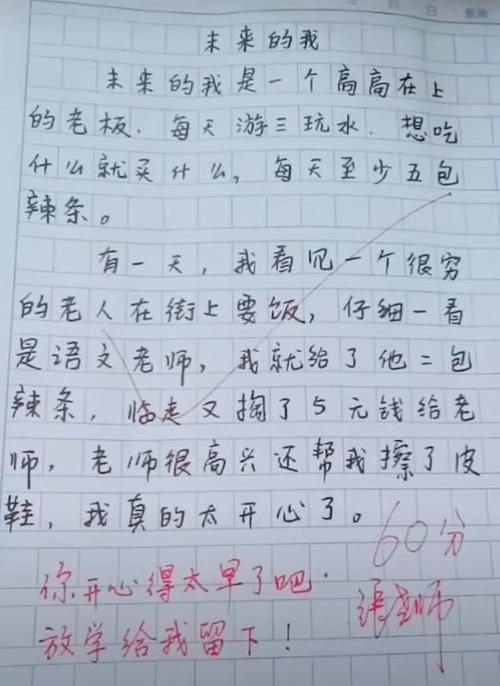 未来的我
未来的我是一个高高在上
的老板.每天游三玩水.想吃
什么就买什么,每天至少五包
辣条。
有一天,我看见一个很穷
的老人在街上要饭,仔细一看
是语文老师,我就给了他二包
辣条,临走又掏了5元钱给老
师,老师很高兴还帮我擦了皮
鞋,我真的太开心了。
60分
你开心得太早了吧.
张老师
放学给我留下!